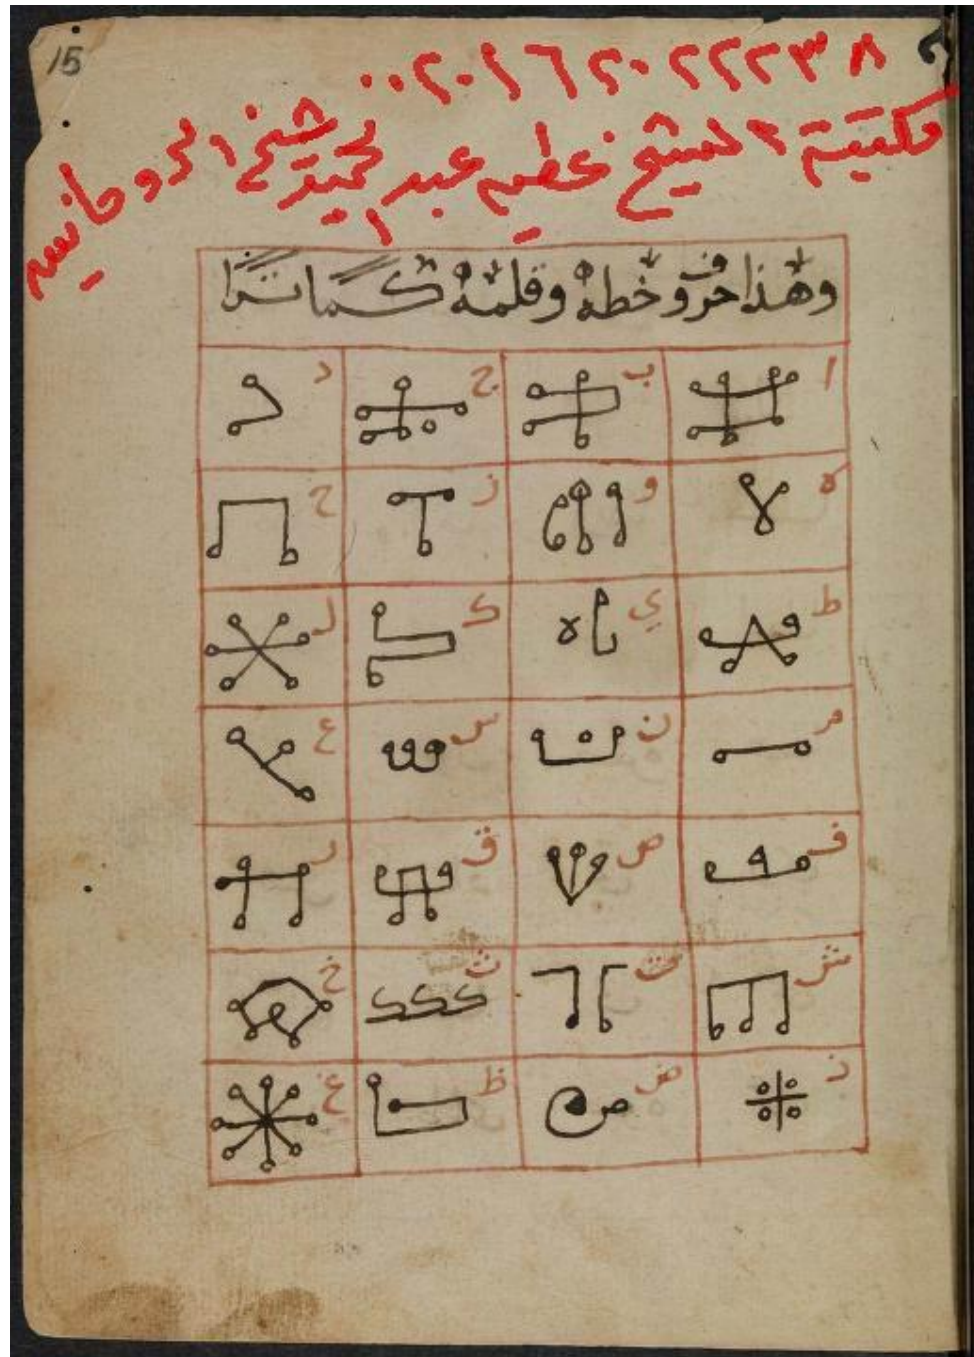 15
٠٠٢٠١٦٢٠٢٢٢٣٨
مكتبة الشيخ عطيه عبد الحميد شيخ الروحانيه
وهذا حروف خطه وقلمه كما ترا
ا ب ج د
ه و ز ح
ط ي ك ل
م ن س ع
ف ص ق ر
ش ت ث خ
ذ ض ظ غ